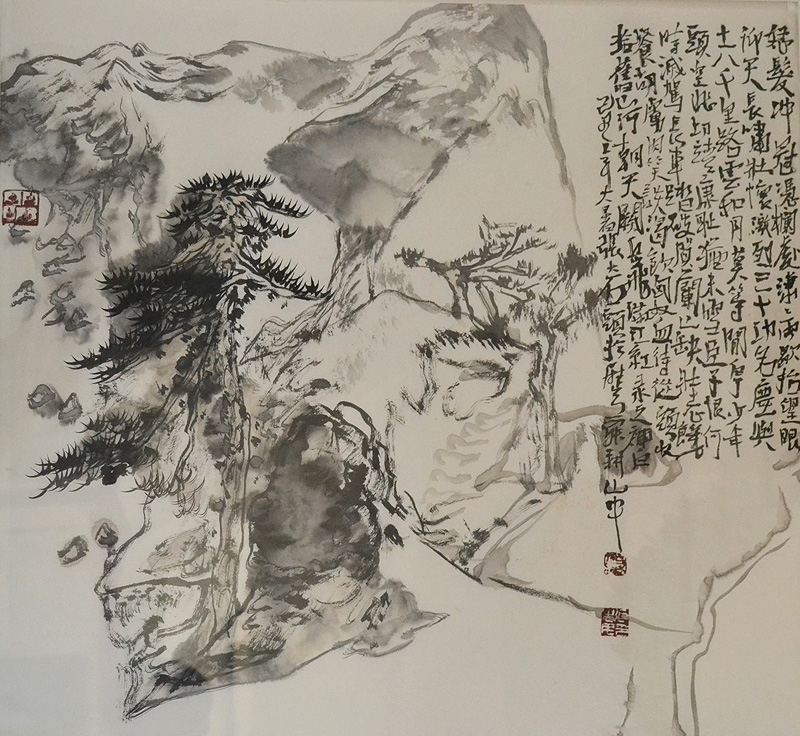 怒髮冲冠憑欄處瀟瀟雨歇抬望眼
仰天長嘯壯懷激烈三十功名塵與
土八千里路雲和月莫等閒白了少年
頭空悲切靖康恥猶未雪臣子恨何
時滅駕長車踏破賀蘭山缺壯志飢
餐胡虜肉笑談渴飲匈奴血待從頭收
拾舊山河朝天闕岳飛滿江紅录之補白
己丑年大暑張大石頭於歷下深耕山中